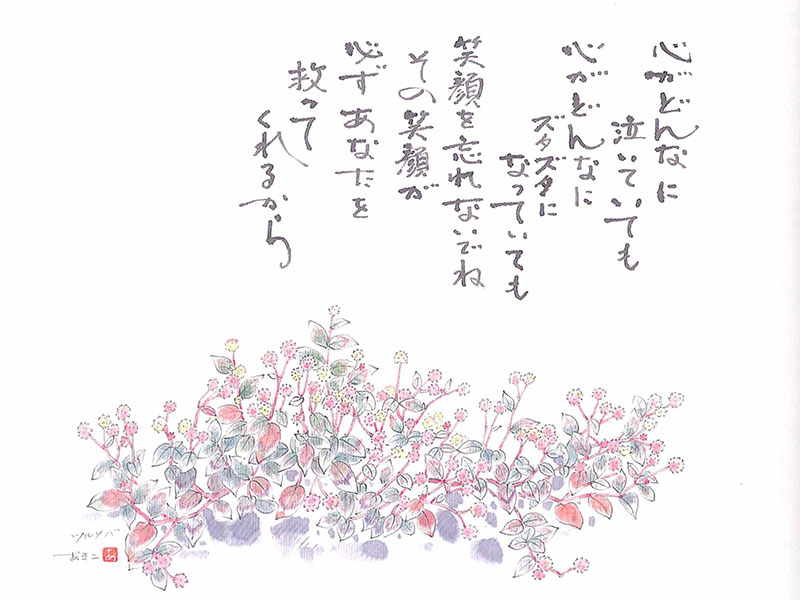 心がどんなに
泣いていても
心がどんなに
ズタズタに
なっていても
笑顔を忘れないでね
その笑顔が
必ずあなたを
救って
くれるから
ツルソバ